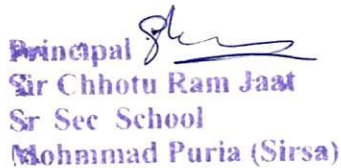 Principal
Sir Chhotu Ram Jaat
Sr Sec School
Mohmmad Puria (Sirsa)